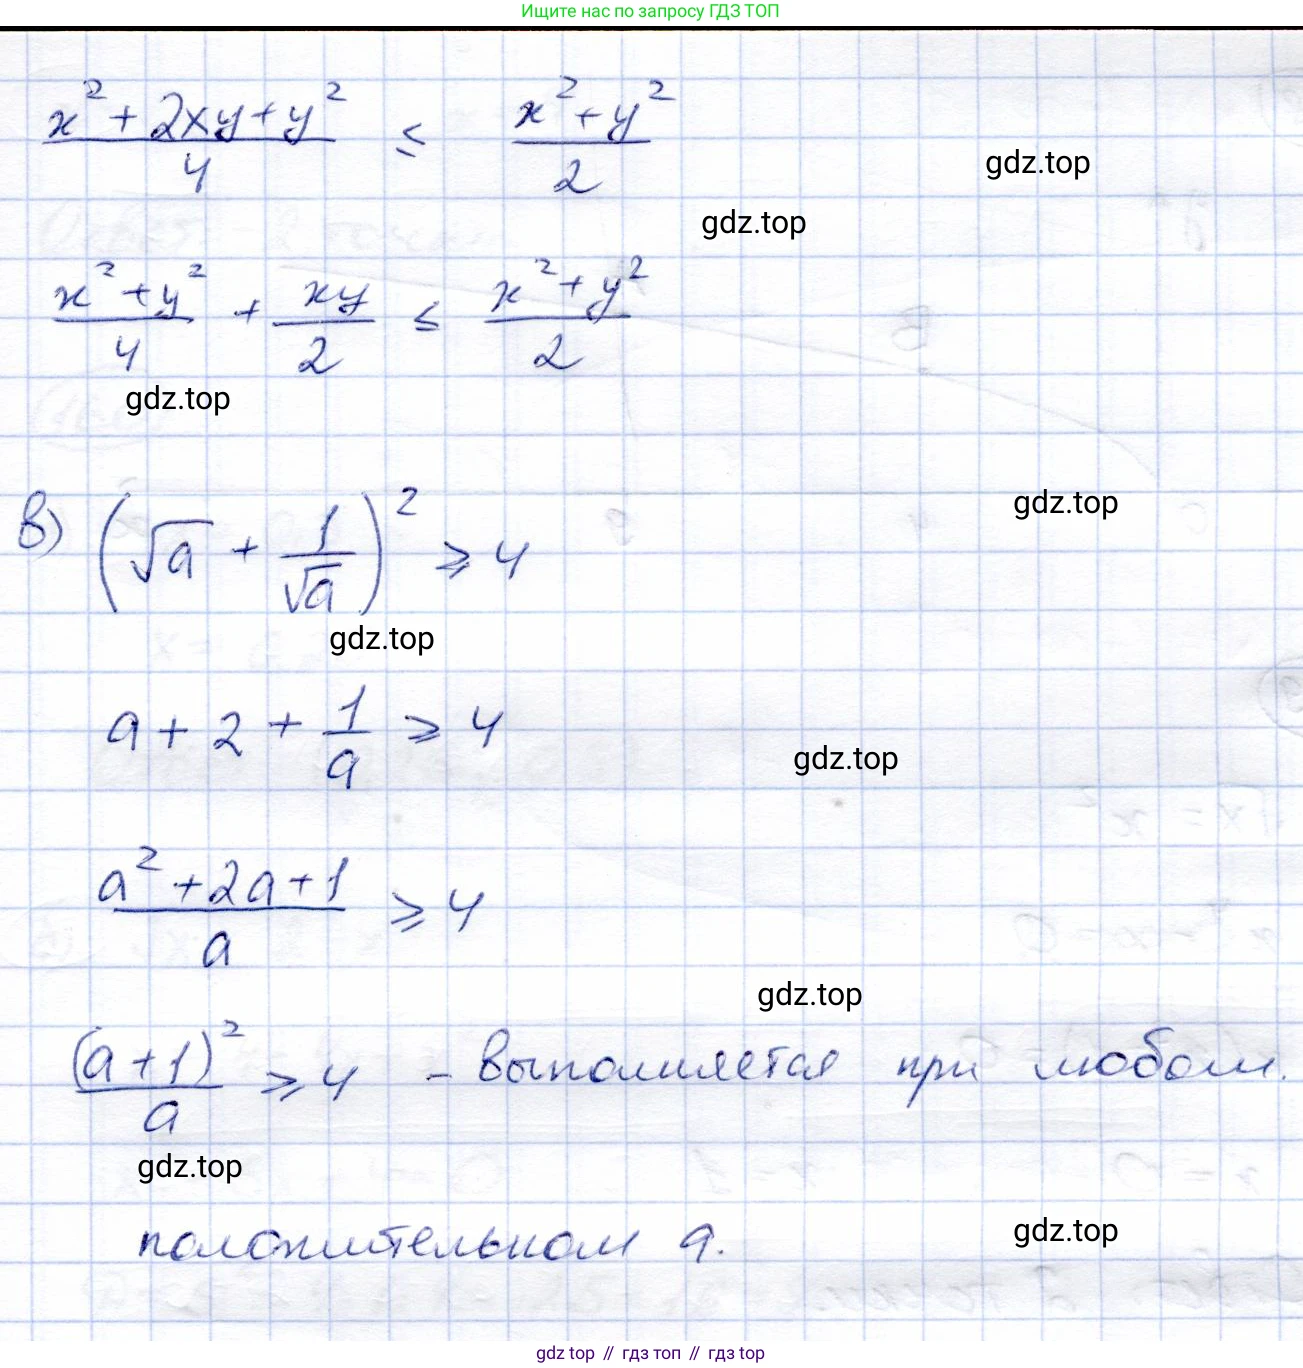 Ищите нас по запросу ГДЗ ТОП
x² + 2xy + y² / 4 ≤ x² + y² / 2
gdz.top
gdz.top
x² + y² / 4 + xy / 2 ≤ x² + y² / 2
gdz.top
в) (√a + 1/√a)² ≥ 4
gdz.top
gdz.top
a + 2 + 1/a ≥ 4
gdz.top
a² + 2a + 1 / a ≥ 4
gdz.top
(a + 1)² / a ≥ 4 – выполняется при любом.
gdz.top
положительном a.
gdz.top
gdz top // гдз топ // gdz top